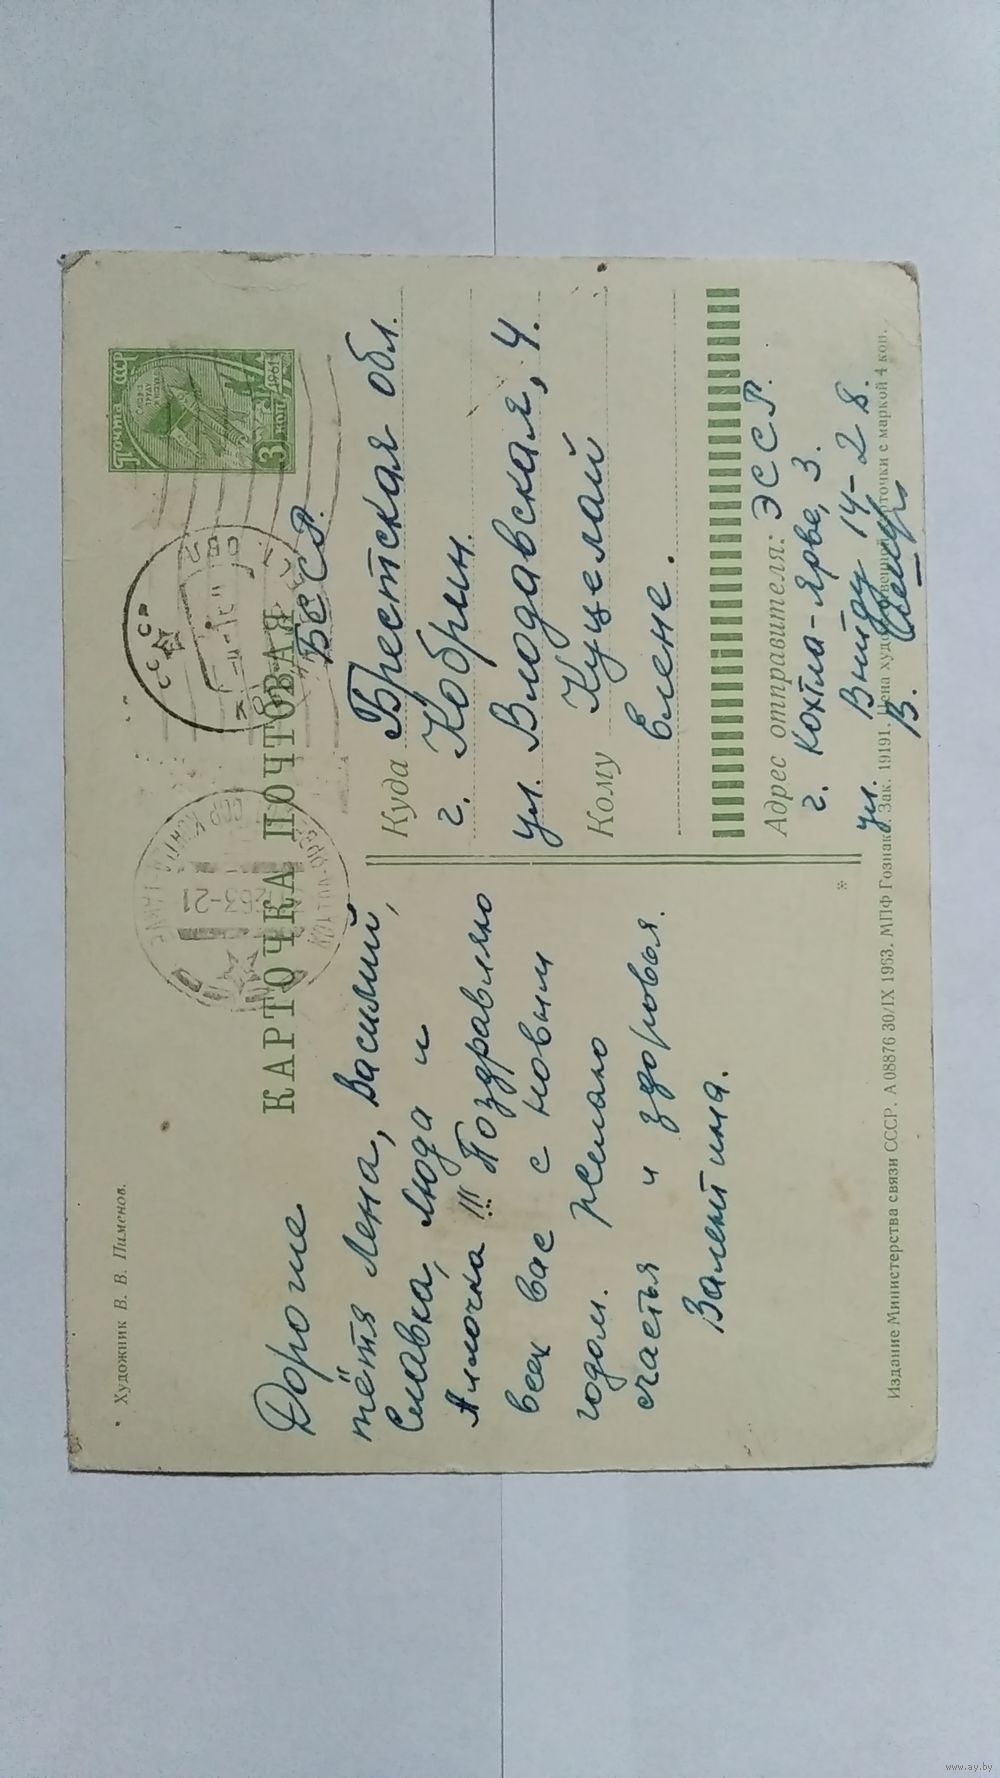 Художник В. В. Пименов.
КАРТОЧКА ПОЧТОВАЯ
ПОЧТА СССР
3 коп.
1961
СССР
63-21
Дорогие
тётя Лена, Василий,
Славка, Люда и
Аллочка!!! Поздравляю
всех вас с новым
годом. Желаю
счастья и здоровья.
Валентина.
БССР.
Куда Брестская обл.
г. Кобрин.
ул. Влодавская, 4.
Кому Куцелай
Елене.
Адрес отправителя: ЭССР.
г. Кохтла-Ярве, 3.
ул. 14-28.
В.
Издание Министерства связи СССР. А 08876 30/IX 1963. МПФ Гознака. Зак. 19191. Цена художественной карточки с маркой 4 коп.
www.ay.by